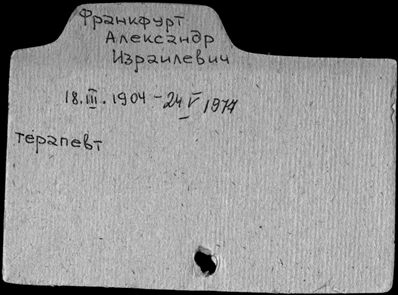 Франкфурт
Александр
Израилевич
18.III.1904 - 24 V 1977
терапевт